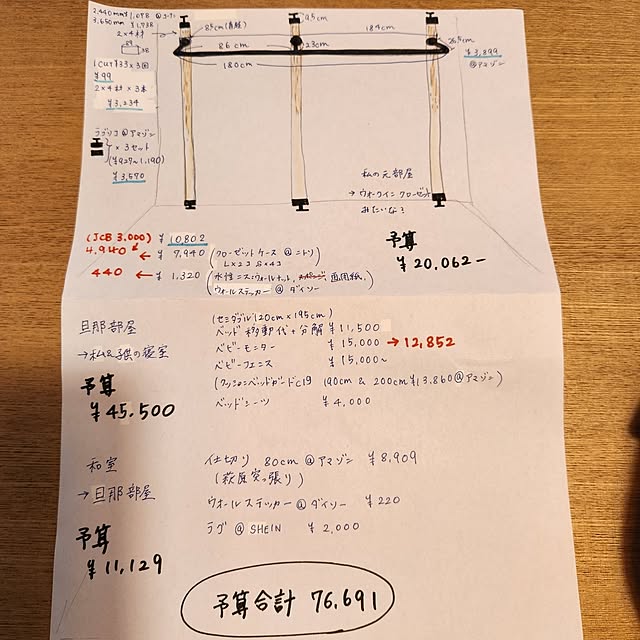 2,440mm ¥1,078 @コーナン
3,650mm ¥1,738
2×4材
89
38
1cut ¥33×3回
¥99
2×4材 × 3本
¥3,234
ラブリコ@アマゾン
× 3セット
(¥927~1,190)
¥3,570
84cm(直径)
9.5cm
184cm
86cm
23cm
26.5cm
180cm
¥3,899
@アマゾン
私の元部屋
→ウォークインクローゼット
みたいな?
(JCB 3,000) ¥10802
4,940 ← ¥7,940 (クローゼットケース@ニトリ
L×23 S×43
440 ← ¥1,320 (水性ニス:ウォールナット, 画用紙,
ウォールステッカー@ダイソー
予算
¥20,062-
旦那部屋
→私&子供の寝室
予算
¥45,500
(セミダブル120cm×195cm)
ベッド移動代+分解 ¥11,500
ベビーモニター ¥15,000 → 12,852
ベビーフェンス ¥15,000~
(クッションベッドガードC19 190cm & 200cm ¥13,860@アマゾン)
ベッドシーツ ¥4,000
和室
→旦那部屋
予算
¥11,129
仕切り 80cm@アマゾン ¥8,909
(萩原突っ張り)
ウォールステッカー@ダイソー ¥220
ラグ@SHEIN ¥2,000
予算合計 76,691